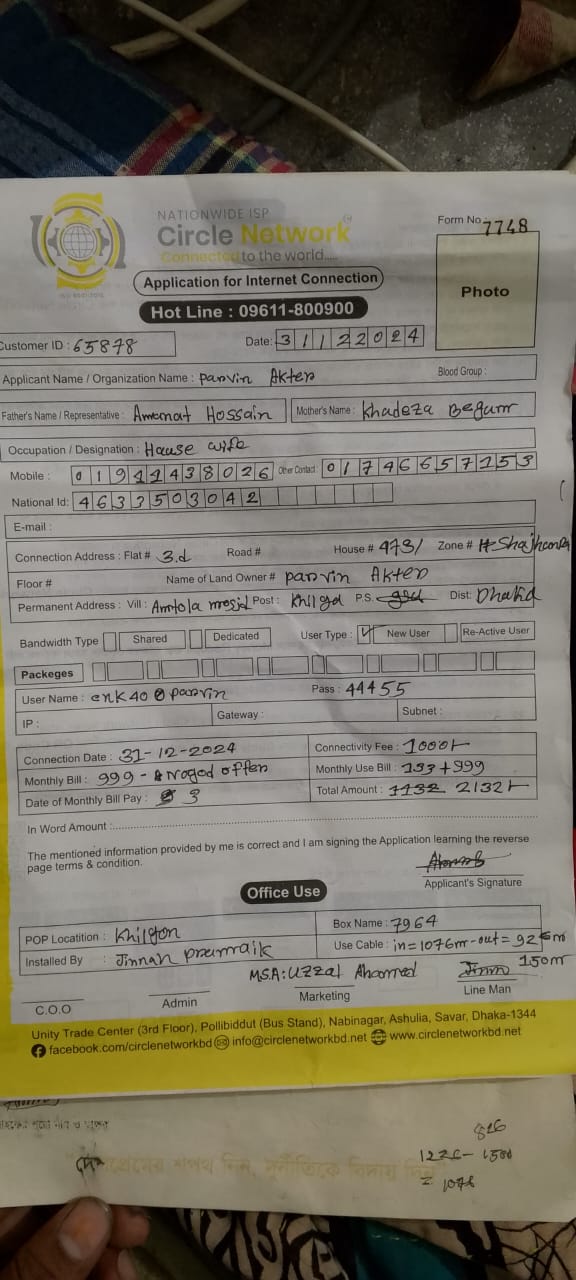 NATIONWIDE ISP
Circle Network
Connected to the world.....
Form No. 7748
Application for Internet Connection
Photo
Hot Line : 09611-800900
Customer ID : 65878
Date: 31122024
Applicant Name / Organization Name : Parvin Akter
Blood Group :
Father's Name / Representative : Amanat Hossain
Mother's Name : Khadeza Begum
Occupation / Designation : House wife
Mobile : 01911438026 Other Contact : 01746657153
National Id: 4633503042
E-mail :
Connection Address : Flat # 3.d Road # House # 473/ Zone #
Floor # Name of Land Owner # Parvin Akter
Permanent Address : Vill : Amtola Post : Khilga P.S. Dist: Dhaka
Bandwidth Type Shared Dedicated User Type : New User Re-Active User
Packeges
User Name : cnk400parvin Pass : 44455
IP : Gateway : Subnet :
Connection Date : 31-12-2024 Connectivity Fee : 1000/-
Monthly Bill : 999 - offer Monthly Use Bill : 133+999
Date of Monthly Bill Pay : 3 Total Amount : 1132 2132/-
In Word Amount :
The mentioned information provided by me is correct and I am signing the Application learning the reverse
page terms & condition.
Applicant's Signature
Office Use
POP Locatition : Khilgon Box Name : 7964
Installed By : Jinnah Use Cable : in=1076m-out=925m
MSA: Uzzal Ahamed 150m
C.O.O Admin Marketing Line Man
Unity Trade Center (3rd Floor), Pollibiddut (Bus Stand), Nabinagar, Ashulia, Savar, Dhaka-1344
facebook.com/circlenetworkbd info@circlenetworkbd.net www.circlenetworkbd.net
শপথ নিন, দুর্নীতিকে বিদায় দিন
= 1076